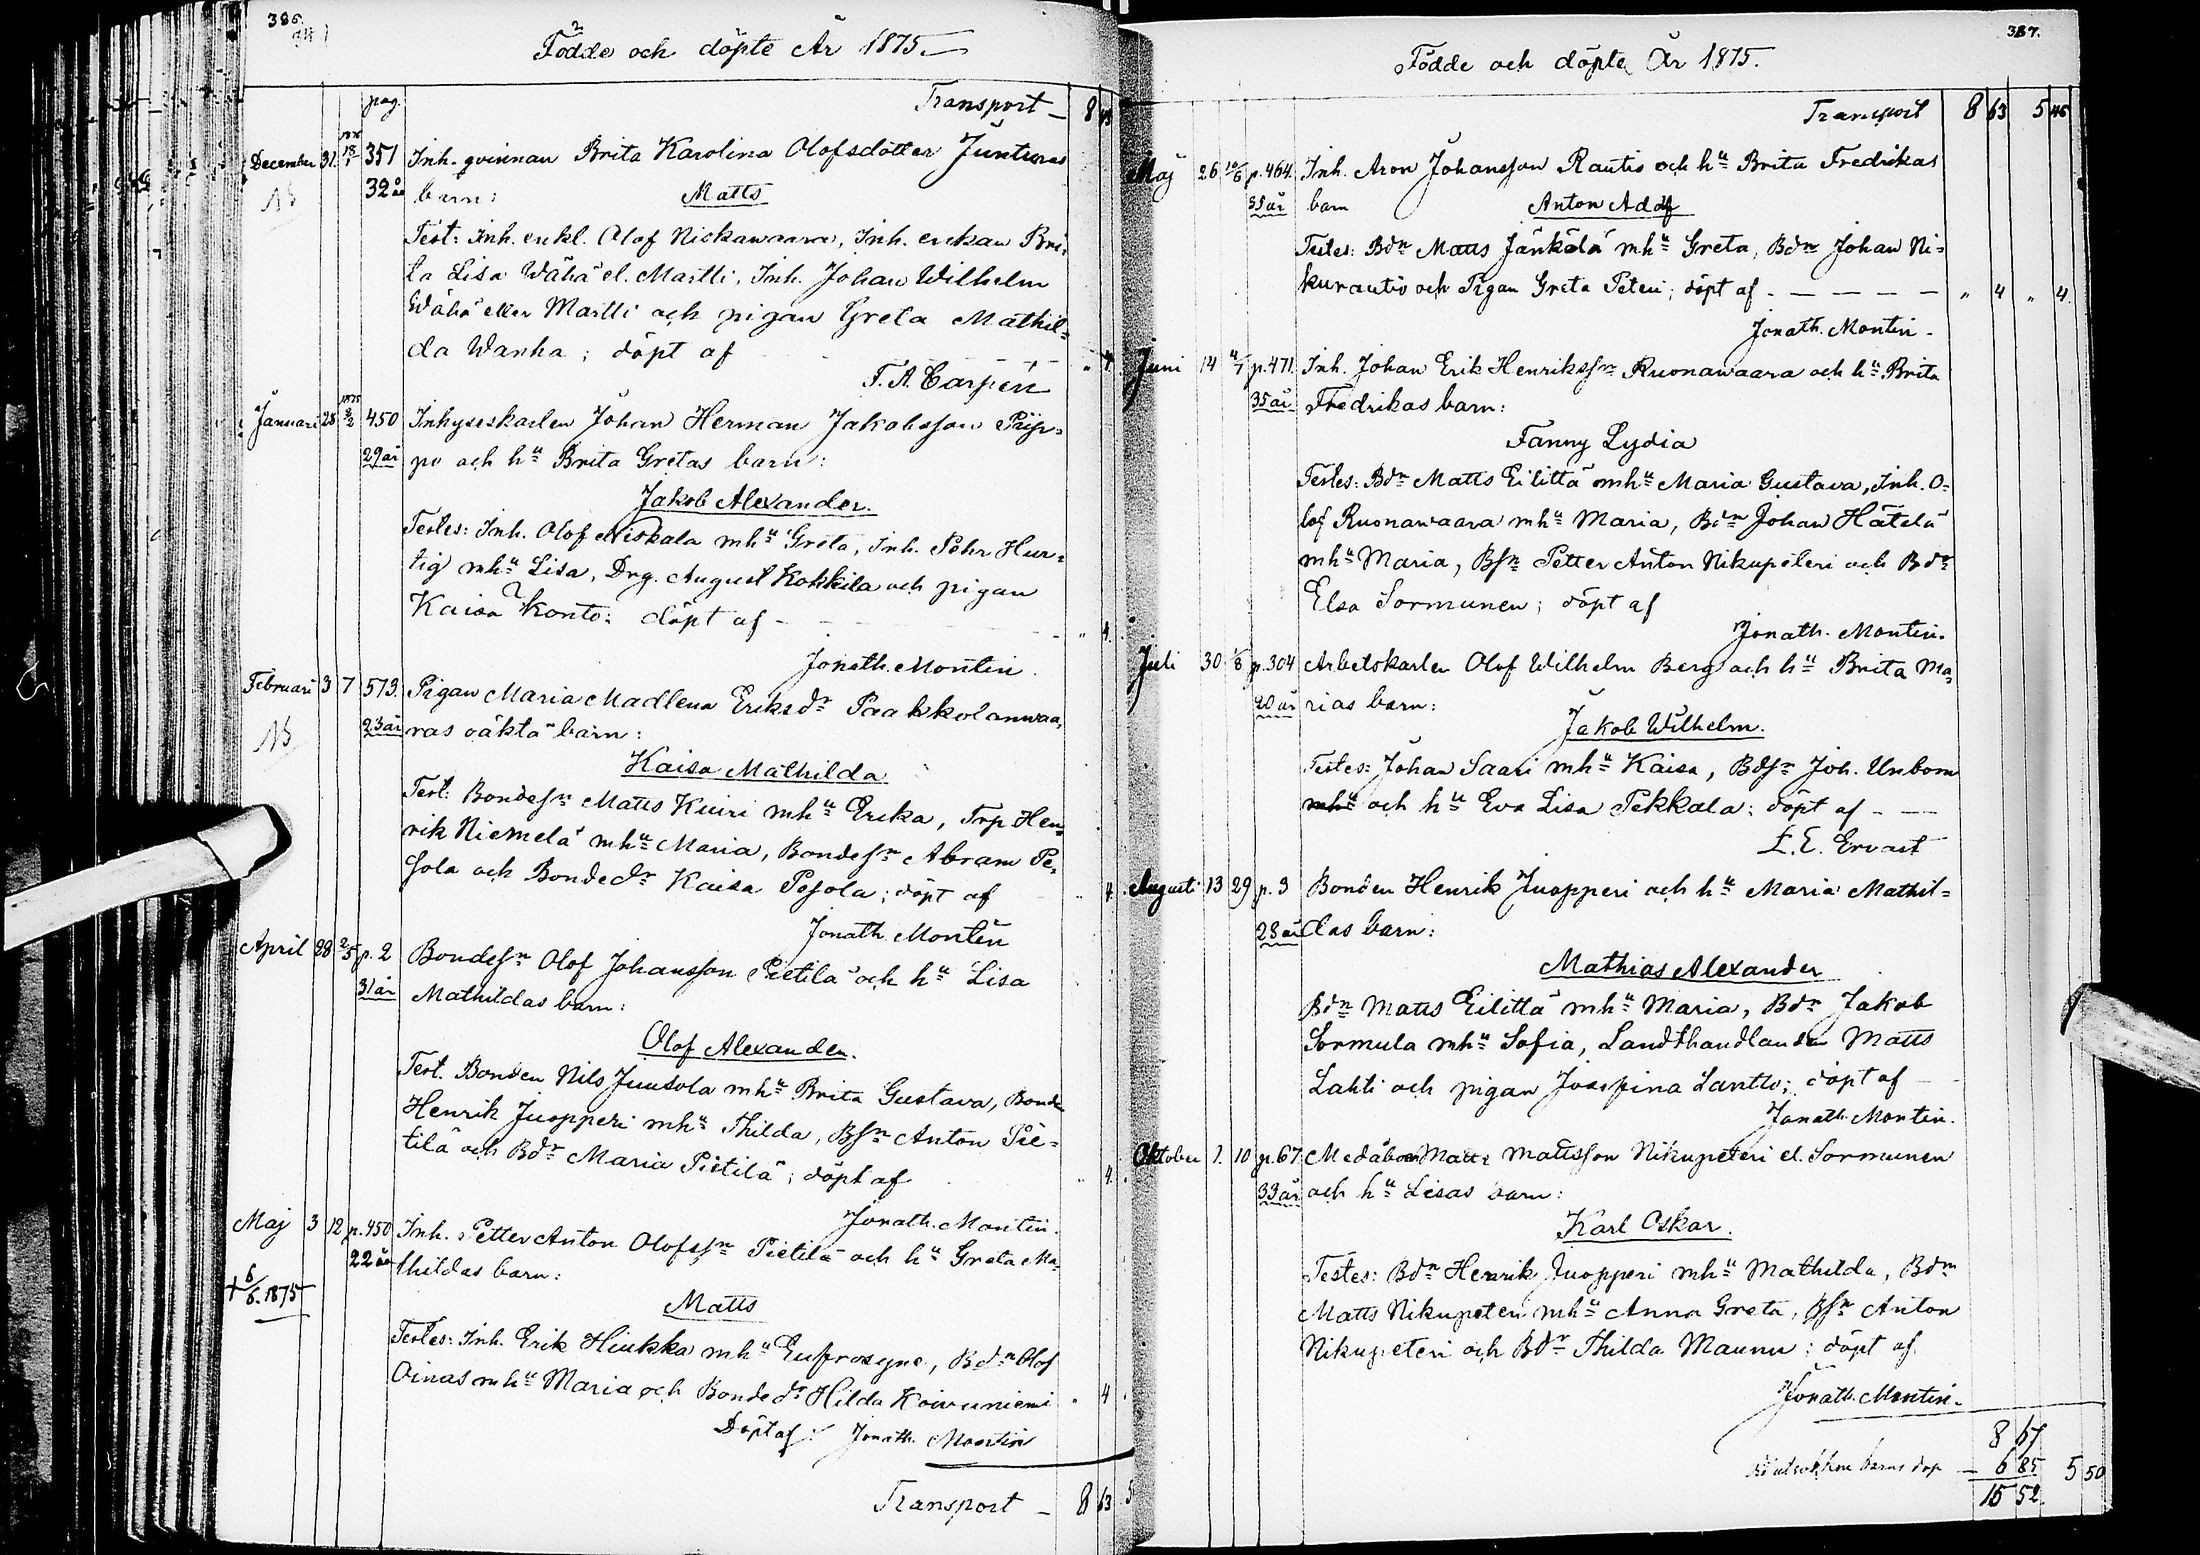 386.
Födde och döpte År 1875.
pag.
Transport 8
December 31. 18/1 351 Inh. qvinnan Brita Karolina Olofsdotter Junturas
32 år barn: Matts
Test: Inh. enkl. Olof Niskawaara, Inh. enkan Bri-
ta Lisa Wähä el. Martti, Inh. Johan Wilhelm
Wähä eller Martti och pigan Greta Mathil-
da Wanha; döpt af " 4.
T. A. Carpén
Januari 28 450 Inhyseskarlen Johan Herman Jakobsson Piip-
29 år po och hu Brita Gretas barn:
Jakob Alexander.
Testes: Inh. Olof Niskala mhu Greta, Inh. Pehr Hur-
tig mhu Lisa, Drg. August Kokkila och pigan
Kaisa Konto; döpt af " 4.
Jonath. Montin
Februari 3 7 573. Pigan Maria Madlena Eriksdr Paakkolanwaa-
NB 23 år ras oäkta barn:
Kaisa Mathilda
Test: Bondesn Matts Kuiri mhu Erika, Trp Hen-
rik Niemelä mhu Maria, Bondesn Abram Pe-
sola och Bondedr Kaisa Pesola; döpt af " 4.
Jonath. Montin
April 28 2/5 p. 2 Bondesn Olof Johansson Pietilä och hu Lisa
31 år Mathildas barn:
Olof Alexander.
Test. Bonden Nils Juusola mhu Brita Gustava, Bonde
Henrik Juopperi mhu Thilda, Bsn Anton Pie-
tilä och Bdr Maria Pietilä; döpt af " 4.
Jonath. Montin.
Maj 3 12 p. 450 Inh. Petter Anton Olofssn Pietilä och hu Greta Ma-
22 år thildas barn:
† 6/6. 1875
Matts
Testes: Inh. Erik Hiukka mhu Eufrosyne, Bdn Olof
Oinas mhu Maria och Bondedr Hilda Koivuniemi " 4.
Döpt af: Jonath. Montin
Transport 8 63 5
387.
Födde och döpte År 1875.
Transport 8 63 5 46
Maj 26 10/6 p. 464. Inh. Aron Johansson Rautio och hu Brita Fredrikas
35 år barn Anton Adolf
Testes: Bdn Matts Jänkälä mhu Greta, Bdn Johan Ni-
kurautio och Pigan Greta Peteri; döpt af " 4 " 4.
Jonath. Montin.
Juni 14 4/7 p. 471. Inh. Johan Erik Henrikssn Ruonawaara och hu Brita
35 år Fredrikas barn:
Fanny Lydia
Testes: Bdn Matts Eilittä mhu Maria Gustava, Inh. O-
lof Ruonawaara mhu Maria, Bdn Johan Hätelä
mhu Maria, Bsn Petter Anton Nikupeteri och Bdr
Elsa Sormunen; döpt af
Jonath. Montin.
Juli 30 1/8 p. 304 Arbetskarlen Olof Wilhelm Berg och hu Brita Ma-
20 år rias barn:
Jakob Wilhelm.
Testes: Johan Saari mhu Kaisa, Bdsn Joh. Unbom
mhu och hu Eva Lisa Pekkala; döpt af
L. E. Ervast
Augusti 13 29 p. 3 Bonden Henrik Juopperi och hu Maria Mathil-
28 år das barn:
Mathias Alexander
Bdn Matts Eilittä mhu Maria, Bdn Jakob
Sormula mhu Sofia, Landthandlanden Matts
Lahti och pigan Josefina Lantto; döpt af
Jonath. Montin.
Oktober 1. 10 p. 67 Medåbon Matts Mattsson Nikupeteri el. Sormunen
33 år och hu Lisas barn:
Karl Oskar.
Testes: Bdn Henrik Juopperi mhu Mathilda, Bdn
Matts Nikupeteri mhu Anna Greta, Bsn Anton
Nikupeteri och Bdr Thilda Maunu; döpt af
Jonath. Montin.
8 67
barns dop 6 85 5 50
15 52.